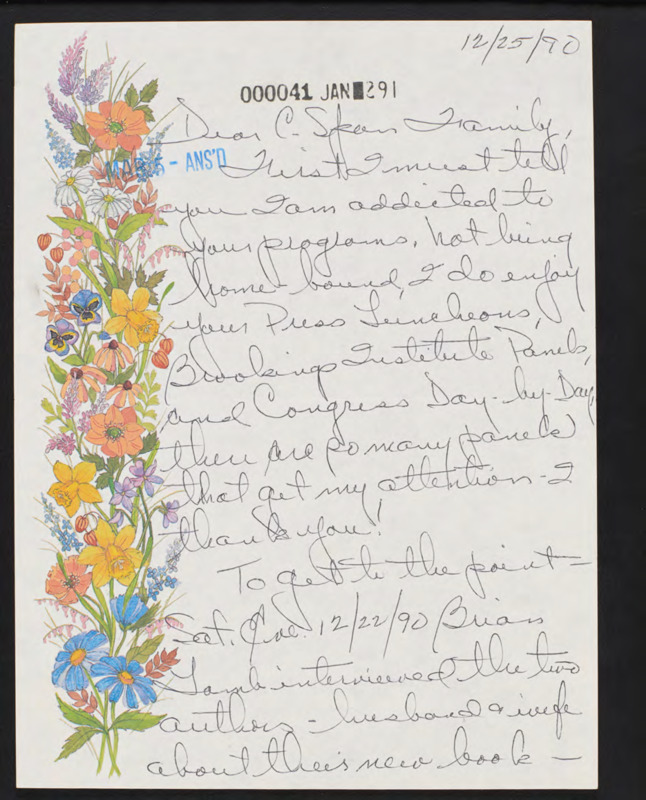 12/25/90
000041 JAN 291
Dear C-Span Family,
MAR 5 - ANS'D
First I must tell
you I am addicted to
your programs, not being
home-bound, I do enjoy
your Press Luncheons,
Brookings Institute Panels,
and Congress Day-by-Day,
there are so many panels
that get my attention - I
thank you!
To get to the point -
Sat. Eve. 12/22/90 Brian
Lamb interviewed the two
authors - husband & wife
about their new book -